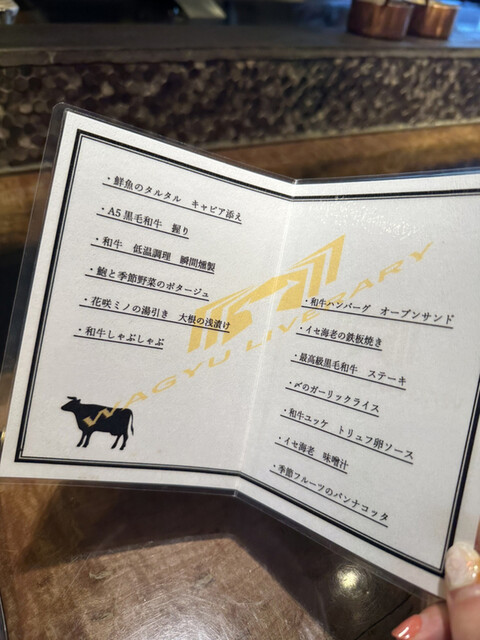 ・鮮魚のタルタル　キャビア添え
・A5 黒毛和牛　握り
・和牛　低温調理　瞬間燻製
・鮑と季節野菜のポタージュ
・花咲ミノの湯引き　大根の浅漬け
・和牛しゃぶしゃぶ
WAGYU LIVERARY
・和牛ハンバーグ　オープンサンド
・イセ海老の鉄板焼き
・最高級黒毛和牛　ステーキ
・〆のガーリックライス
・和牛ユッケ　トリュフ卵ソース
・イセ海老　味噌汁
・季節フルーツのパンナコッタ